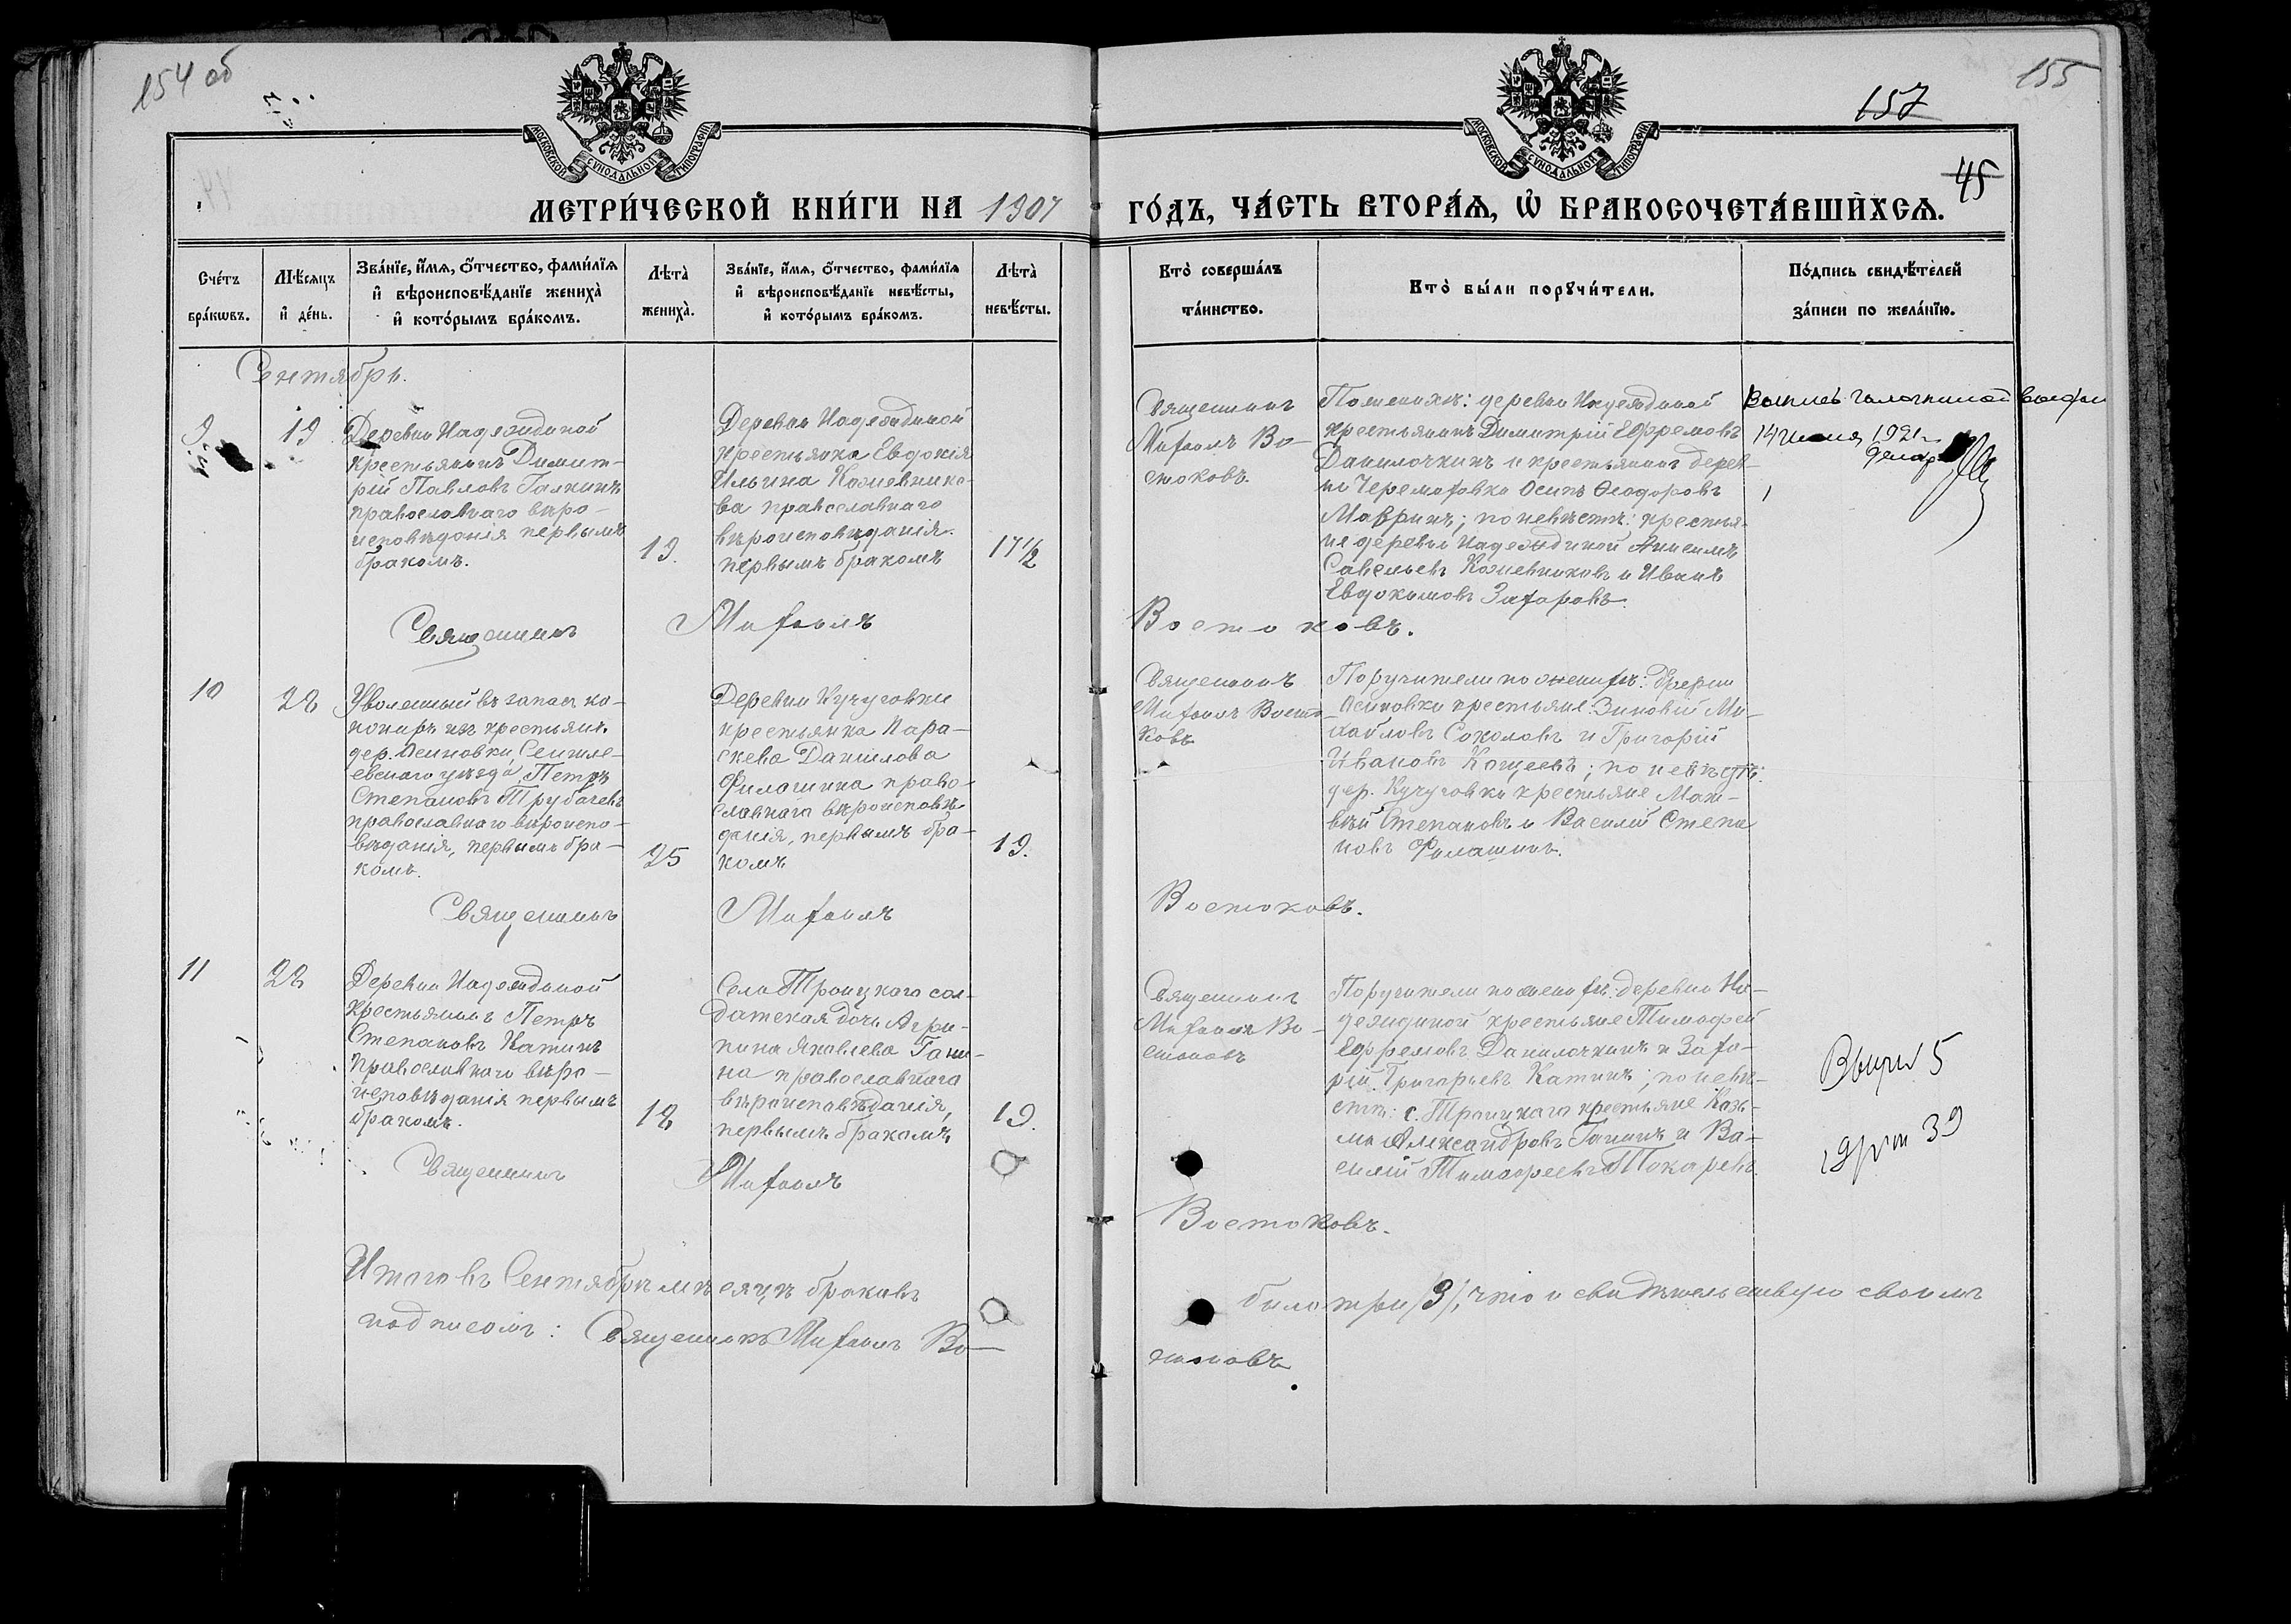 154 об
155
157
45
МОСКОВСКОЙ СѴНОДАЛЬНОЙ ТИПОГРАФІИ
МОСКОВСКОЙ СѴНОДАЛЬНОЙ ТИПОГРАФІИ
МЕТРИ́ЧЕСКОЙ КНИ́ГИ НА 1907
ГО́ДЪ, ЧА́СТЬ ВТОРА́Ѧ, Ѡ҆ БРАКОСОЧЕТА́ВШИХСѦ.
Сче́тъ
бра́кѡвъ.
Мѣ́сѧцъ
и҆ де́нь.
Зва́нїе, и҆́мѧ, ѻ҆́тчество, фами́лїѧ
и҆ вѣроисповѣ́данїе жениха̀
и҆ кото́рымъ бра́комъ.
Лѣта̀
жениха̀.
Зва́нїе, и҆́мѧ, ѻ҆́тчество, фами́лїѧ
и҆ вѣроисповѣ́данїе невѣ́сты,
и҆ кото́рымъ бра́комъ.
Лѣта̀
невѣ́сты.
Кто̀ соверша́лъ
та́инство.
Кто̀ бы́ли порꙋчи́тели.
По́дпись свидѣ́телей
за́писи по жела́нїю.
Сентябрь.
9.
19
Деревни Надеждиной
крестьянинъ Димит-
рій Павловъ Галкинъ
православнаго вѣро-
исповѣданія первымъ
бракомъ.
19.
Деревни Надеждиной
крестьянка Евдокія
Ильина Кожевнико-
ва православнаго
вѣроисповѣданія.
первымъ бракомъ
17 1/2
Священникъ
Михаилъ Во-
стоковъ.
По женихѣ: деревни Надеждиной
крестьянинъ Димитрій Ефремовъ
Данилочкинъ и крестьянинъ дерев-
ни Черемховка Осипъ Ѳеодоровъ
Мавринъ; по невѣстѣ: крестья-
не деревни Надеждиной Анисимъ
Савельевъ Кожевниковъ и Иванъ
Евдокимовъ Захаровъ.
14 июня 1921 г.
Священникъ Михаилъ Востоковъ.
10
22
Уволенный въ запасъ ка-
нониръ изъ крестьянъ
дер. Осиновки, Сенгиле-
евскаго уѣзда, Петръ
Степановъ Трубачевъ
православнаго вѣроиспо-
вѣданія, первымъ бра-
комъ.
25
Деревни Кучуговки
крестьянка Пара-
скева Данилова
Филашина право-
славнаго вѣроисповѣ-
данія, первымъ бра-
комъ
19.
Священникъ
Михаилъ Восто-
ковъ
Поручители по женихѣ: деревни
Осиновки крестьяне: Зиновій Ми-
хайловъ Соколовъ и Григорій
Ивановъ Кощеевъ; по невѣстѣ:
дер. Кучуговки крестьяне Мат-
вѣй Степановъ и Василій Степа
новъ Филашинъ.
Священникъ Михаилъ Востоковъ.
11
22
Деревни Надеждиной
крестьянинъ Петръ
Степановъ Катинъ
Православнаго вѣро-
исповѣданія первымъ
бракомъ.
18
Села Троицкаго сол-
датская дочь Агри-
пина Яковлева Гани-
на православнаго
вѣроисповѣданія,
первымъ бракомъ
19.
Священникъ
Михаилъ Во-
стоковъ
Поручители по женихѣ: деревни На-
деждиной крестьяне Тимофей
Ефремовъ Данилочкинъ и Заха-
рій Григорьевъ Катинъ; по невѣ-
стѣ: с. Троицкаго крестьяне Козь-
ма Александровъ Ганинъ и Ва-
силій Тимофеевъ Токаревъ.
Священникъ Михаилъ Востоковъ.
Итого въ Сентябрѣ мѣсяцѣ браковъ было три /3/, что и свидѣтельствую своимъ
подписомъ: Священникъ Михаилъ Во-
стоковъ.